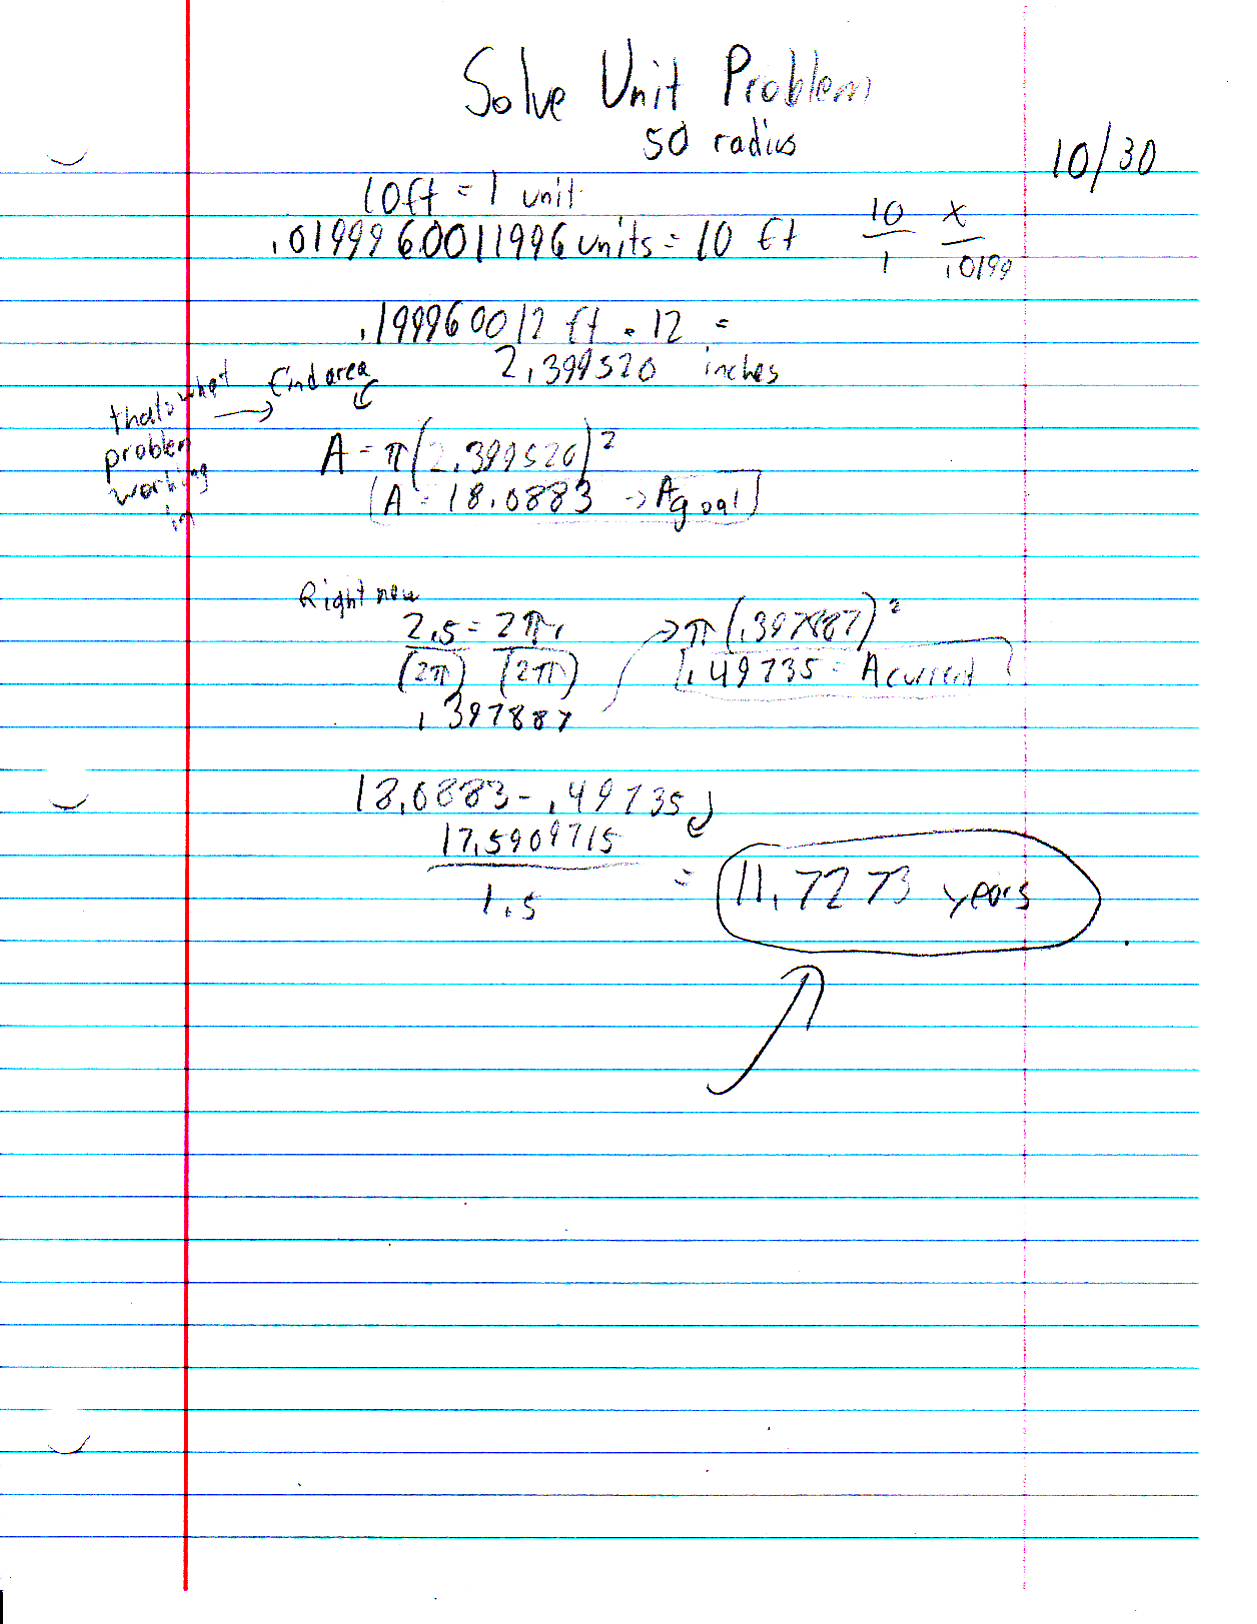 Solve Unit Problem
50 radius
10/30
10ft = 1 unit
.0199960011996 units = 10 ft
10 x
1 .0199
.199960012 ft · 12 =
2.399520 inches
thats what problem working in → find area
A = π(2.399520)²
A = 18.0883 → Agoal
Right now
2.5 = 2πr
(2π) (2π)
.397887
→ π(.397887)²
.49735 = Acurrent
18.0883 - .49735
17.5909715
1.5
= 11.7273 years